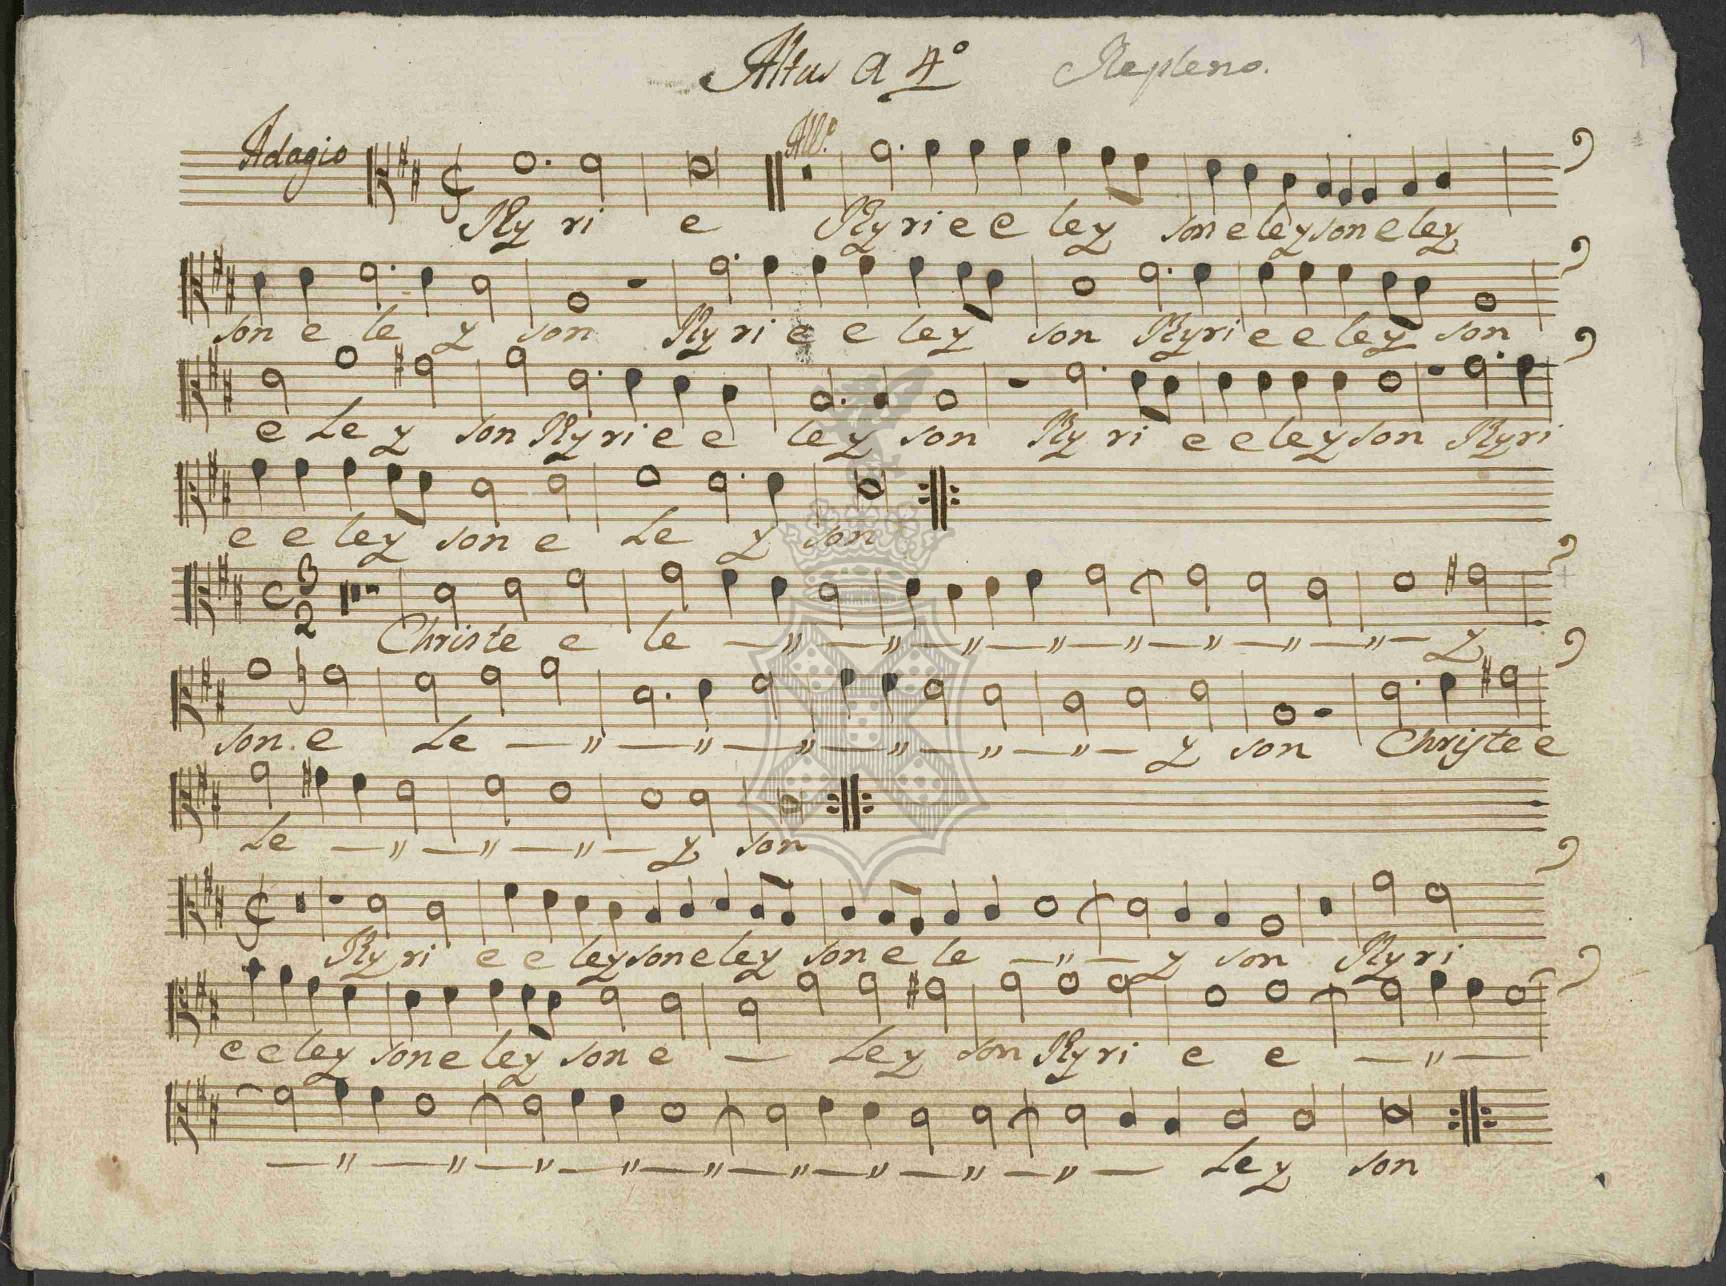 Altus a 4º Repleno.
1
Adagio Allº
Ky ri e Ky ri e e ley son e ley son e ley
son e le y son Ky ri e e ley son Kyri e e ley son
e Le y son Ky ri e e le y son Ky ri e e ley son Kyri
e e ley son e Le y son
3
2
Christe e le — " — " — " — " — " — " — " — " — y
son e Le — " — " — " — " — " — " — y son Christe e
Le — " — " — " — y son
Ky ri e e ley son e ley son e le — " — y son Ky ri
e e ley son e ley son e — Le y son Ky ri e e — " —
— " — " — " — " — " — " — " — " — " — Le y son